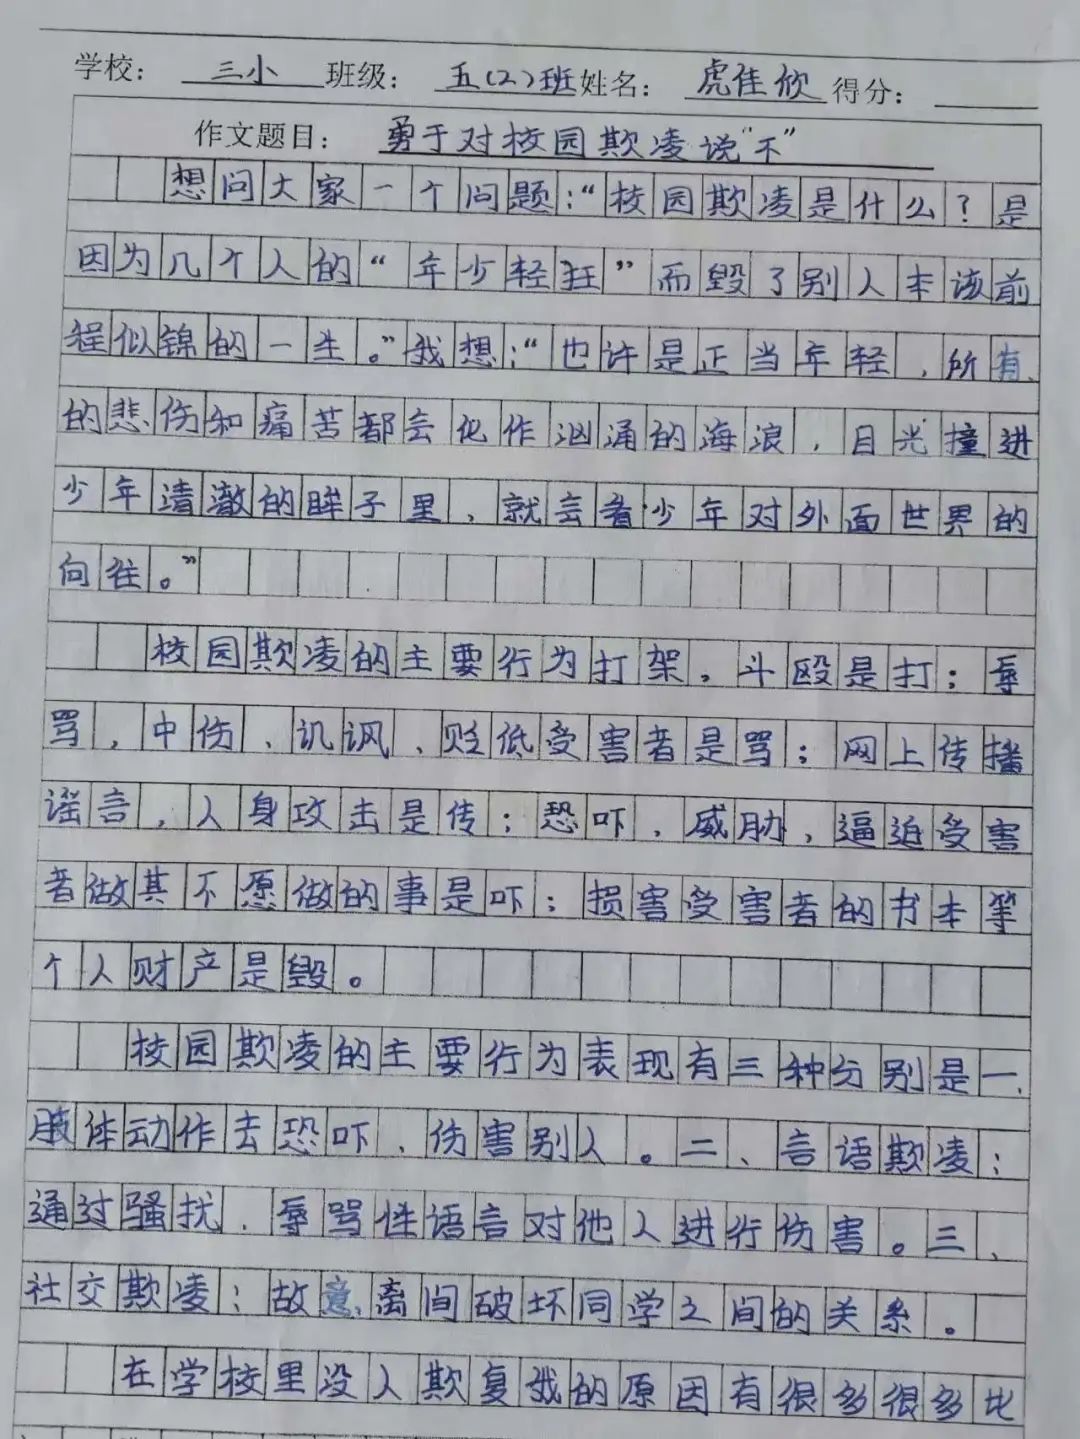 学校： 三小 班级： 五（2）班 姓名： 虎佳欣 得分：
作文题目： 勇于对校园欺凌说“不”
想问大家一个问题：“校园欺凌是什么？是
因为几个人的“年少轻狂”而毁了别人本该前
程似锦的一生。”我想：“也许是正当年轻，所有
的悲伤和痛苦都会化作汹涌的海浪，目光撞进
少年清澈的眸子里，就会看少年对外面世界的
向往。”
校园欺凌的主要行为打架，斗殴是打；辱
骂，中伤、讥讽、贬低受害者是骂；网上传播
谣言，人身攻击是传；恐吓、威胁，逼迫受害
者做其不愿做的事是吓；损害受害者的书本等
个人财产是毁。
校园欺凌的主要行为表现有三种分别是一、
肢体动作去恐吓、伤害别人。二、言语欺凌：
通过骚扰、辱骂性语言对他人进行伤害。三、
社交欺凌：故意离间破坏同学之间的关系。
在学校里没人欺复我的原因有很多很多比